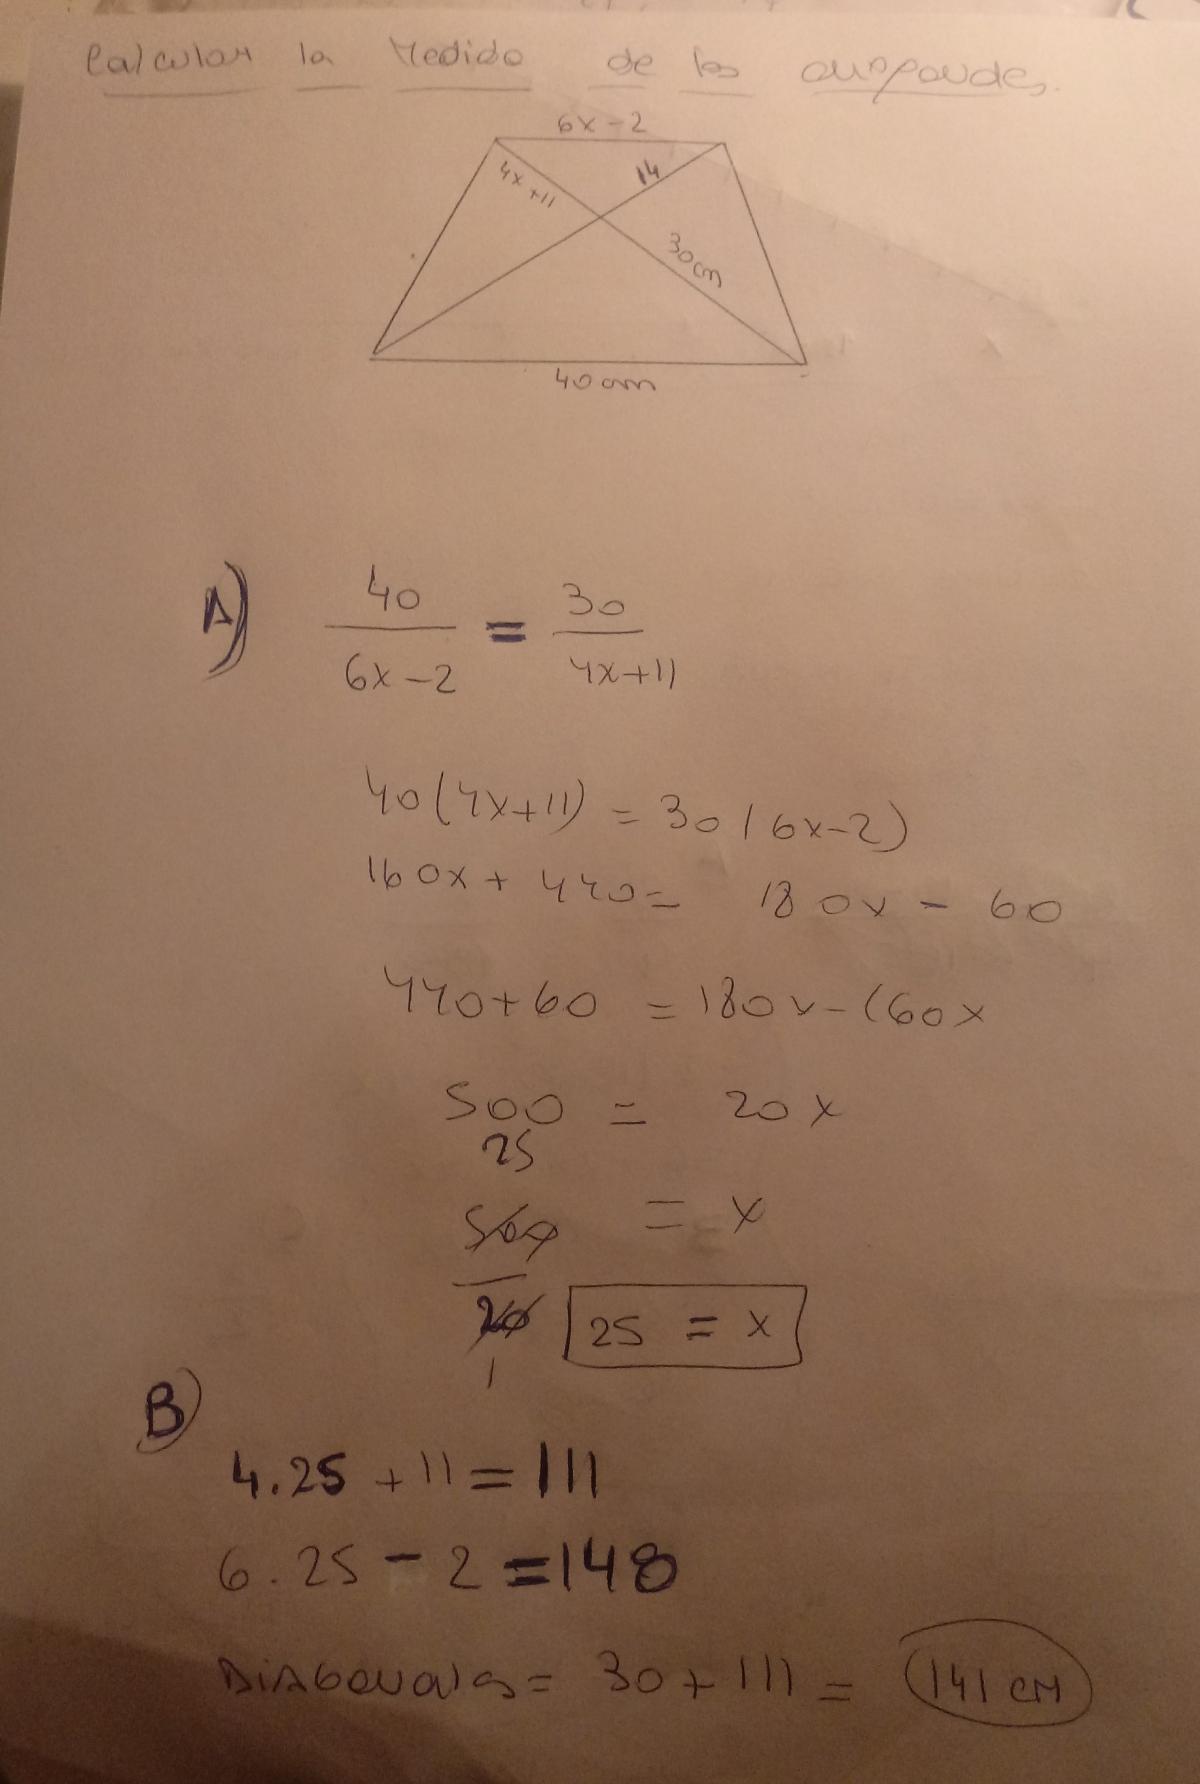 Calcular la Medida de las diagonales.
6x-2
4x+11
14
30cm
40cm
A) 40/6x-2 = 30/4x+11
40(4x+11) = 30(6x-2)
160x + 440 = 180x - 60
440+60 = 180x-160x
500 = 20x
25
500/20 = x
1
25 = x
B)
4.25 + 11 = 111
6.25 - 2 = 148
DIAGONALES = 30 + 111 = 141 cm